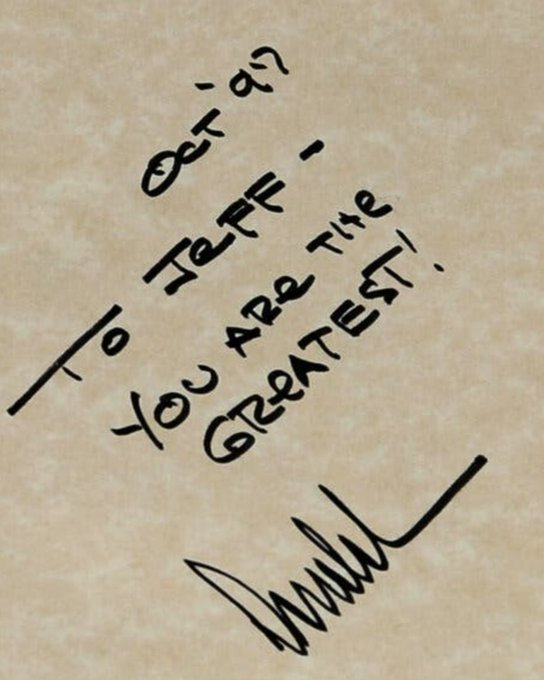 Oct '97
TO JeFF -
YOU ARe THe
GReATEST!